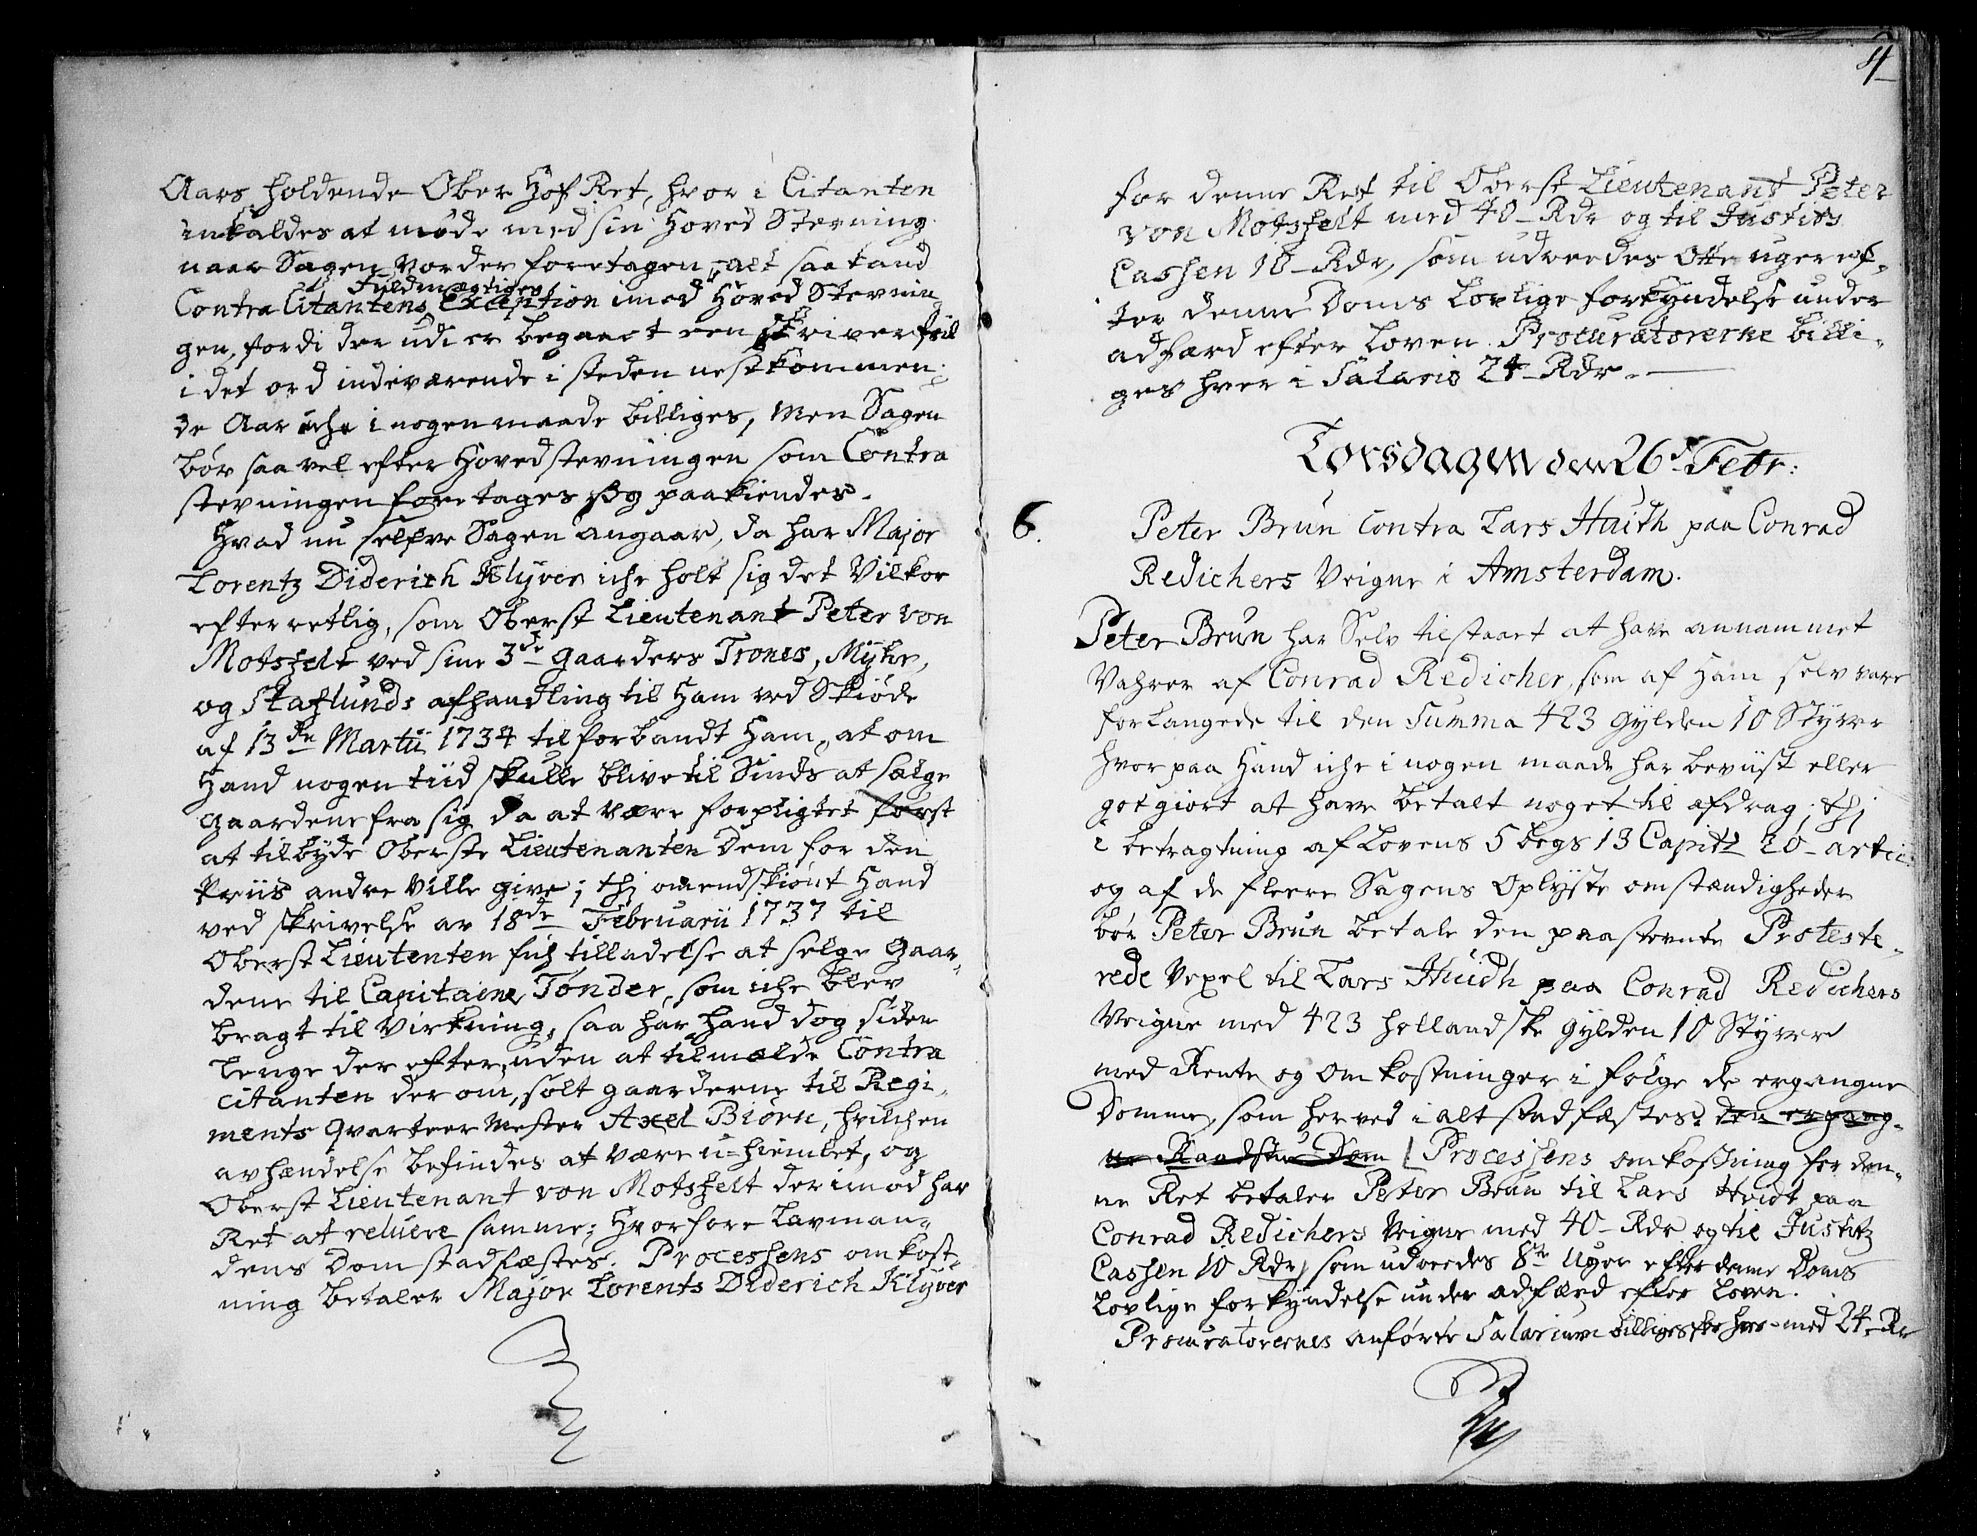 Aars holdende Ober Hof Ret, hvor i Citanten
indkaldes at møde med sin Hoved Stevning
naar Sagen vorder foretagen, alt saa kand
Fuldmægtiges
Contra Citantens Exception imod Hoved Stevnin¬
gen, fordi der udi er begaaet een skriverfeil
i det ord indeværende i steden nestkommen¬
de Aar iche i nogen maade billiges, Men Sagen
bør saa vel efter Hovedstevningen som Contra
stevningen foretages og paakiendes.
Hvad nu selfve Sagen angaar, da har Major
Lorentz Diderich Klyver iche holt sig det Vilkor
efterretlig, som Oberst Lieutenant Peter von
Motzfelt ved sine 3de gaarders Trones, Myhr,
og Staflunds afhandling til Ham ved Skiøde
af 13de Martii 1734 tilforbandt Ham, at om
Hand nogen tiid skulle blive til Sinds at sælge
gaardene fra sig da at være forpligtet først
at tilbyde Oberste Lieutenanten Dem for den
Priis andre Ville give; thi omendskiønt Hand
ved skrivelse av 18de Februarii 1737 til
Oberst Lieutenten fich tilladelse at selge Gaar¬
dene til Capitaine Tønder, som iche blev
bragt til Virkning, saa har hand dog siden
lenge der efter, uden at tilmælde Contra
citanten der om, solt gaarderne til Regi¬
ments Qvarteer Mester Axel Biørn, hvilchen
avhændelse befindes at være u-hiemlet, og
Oberst Lieutenant von Motzfelt derimod har
Ret at reluere samme; Hvorfore Lavman¬
dens Dom stadfæstes. Processens omkost¬
ning betaler Major Lorents Diderich Klyver
4
for denne Ret til Oberst Lieutenant Peter
von Motzfelt med 40 Rdr og til Justits
Cassen 10 Rdr, som udreedes Otte uger ef¬
ter denne Doms Lovlige forkyndelse under
adfærd efter Loven. Procuratorerne billi¬
ges hver i Salario 24 Rdr.
Torsdagen den 26de Febr:
6. Peter Brun Contra Lars Huidh paa Conrad
Redichers Veigne i Amsterdam.
Peter Brun har Selv tilstaaet at have annammet
Vahrer af Conrad Redicher, som af Ham selv vare
forlangede til den Summa 423 Gylden 10 Styver
hvor paa Hand iche i nogen maade har beviist eller
gotgiort at have betalt noget til afdrag; thi
i betragtning af Lovens 5 bogs 13 Capitl 20 artic
og af de fleere Sagens Oplyste omstændigheder
bør Peter Brun betale den paastevnte Proteste¬
rede Vexel til Lars Huidh paa Conrad Redichers
Veigne med 423 hollandske Gylden 10 Styver
med Rente og Omkostninger i følge de ergangne
Domme, som herved i alt stadfæstes. den ergang¬
ne Raadstue Dom Processens omkostning for den¬
ne Ret betaler Peter Brun til Lars Hvidt paa
Conrad Redichers Veigne med 40 Rdr og til Justitz
Cassen 10 Rdr, som udreedes 8te Uger efter denne Doms
Lovlige forkyndelse under adfærd efter Loven.
Procuratorernes anførte Salarium billiges hver med 24 Rdr